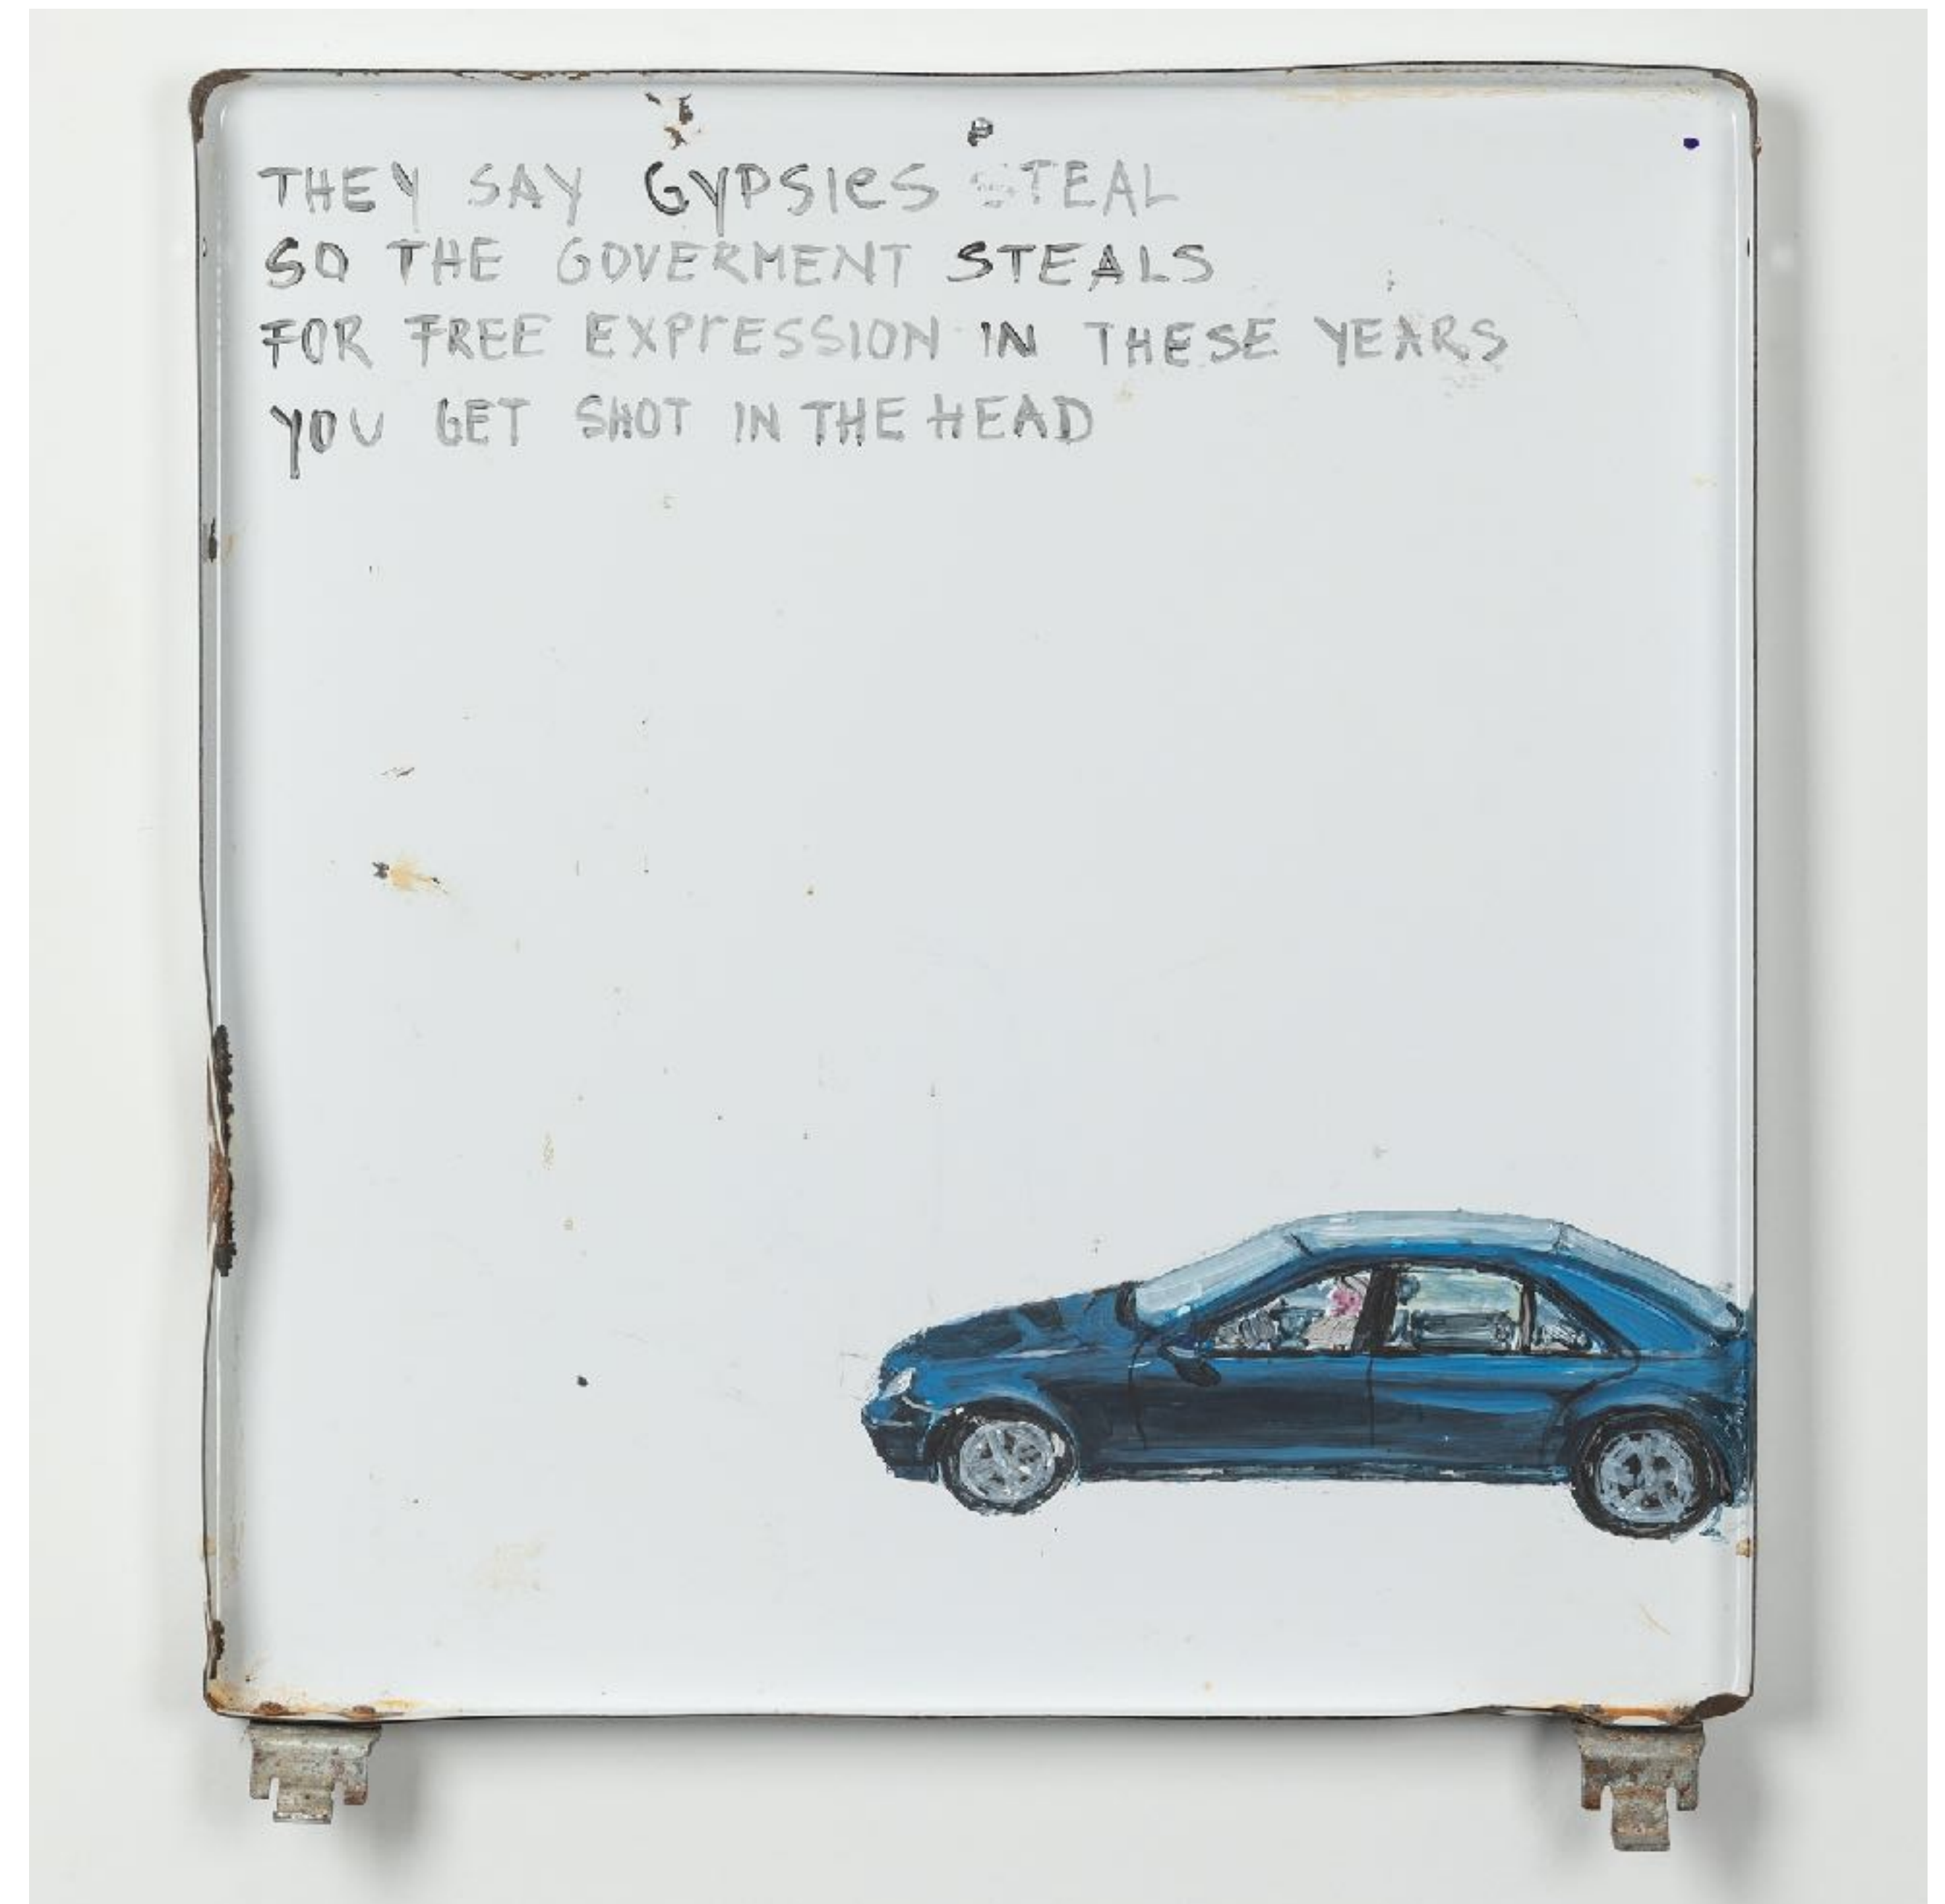 THEY SAY GYPSIeS STEAL
SO THE GOVERMENT STEALS
FOR FREE EXPrESSION IN THESE YEARS
YOU GET SHOT IN THE HEAD